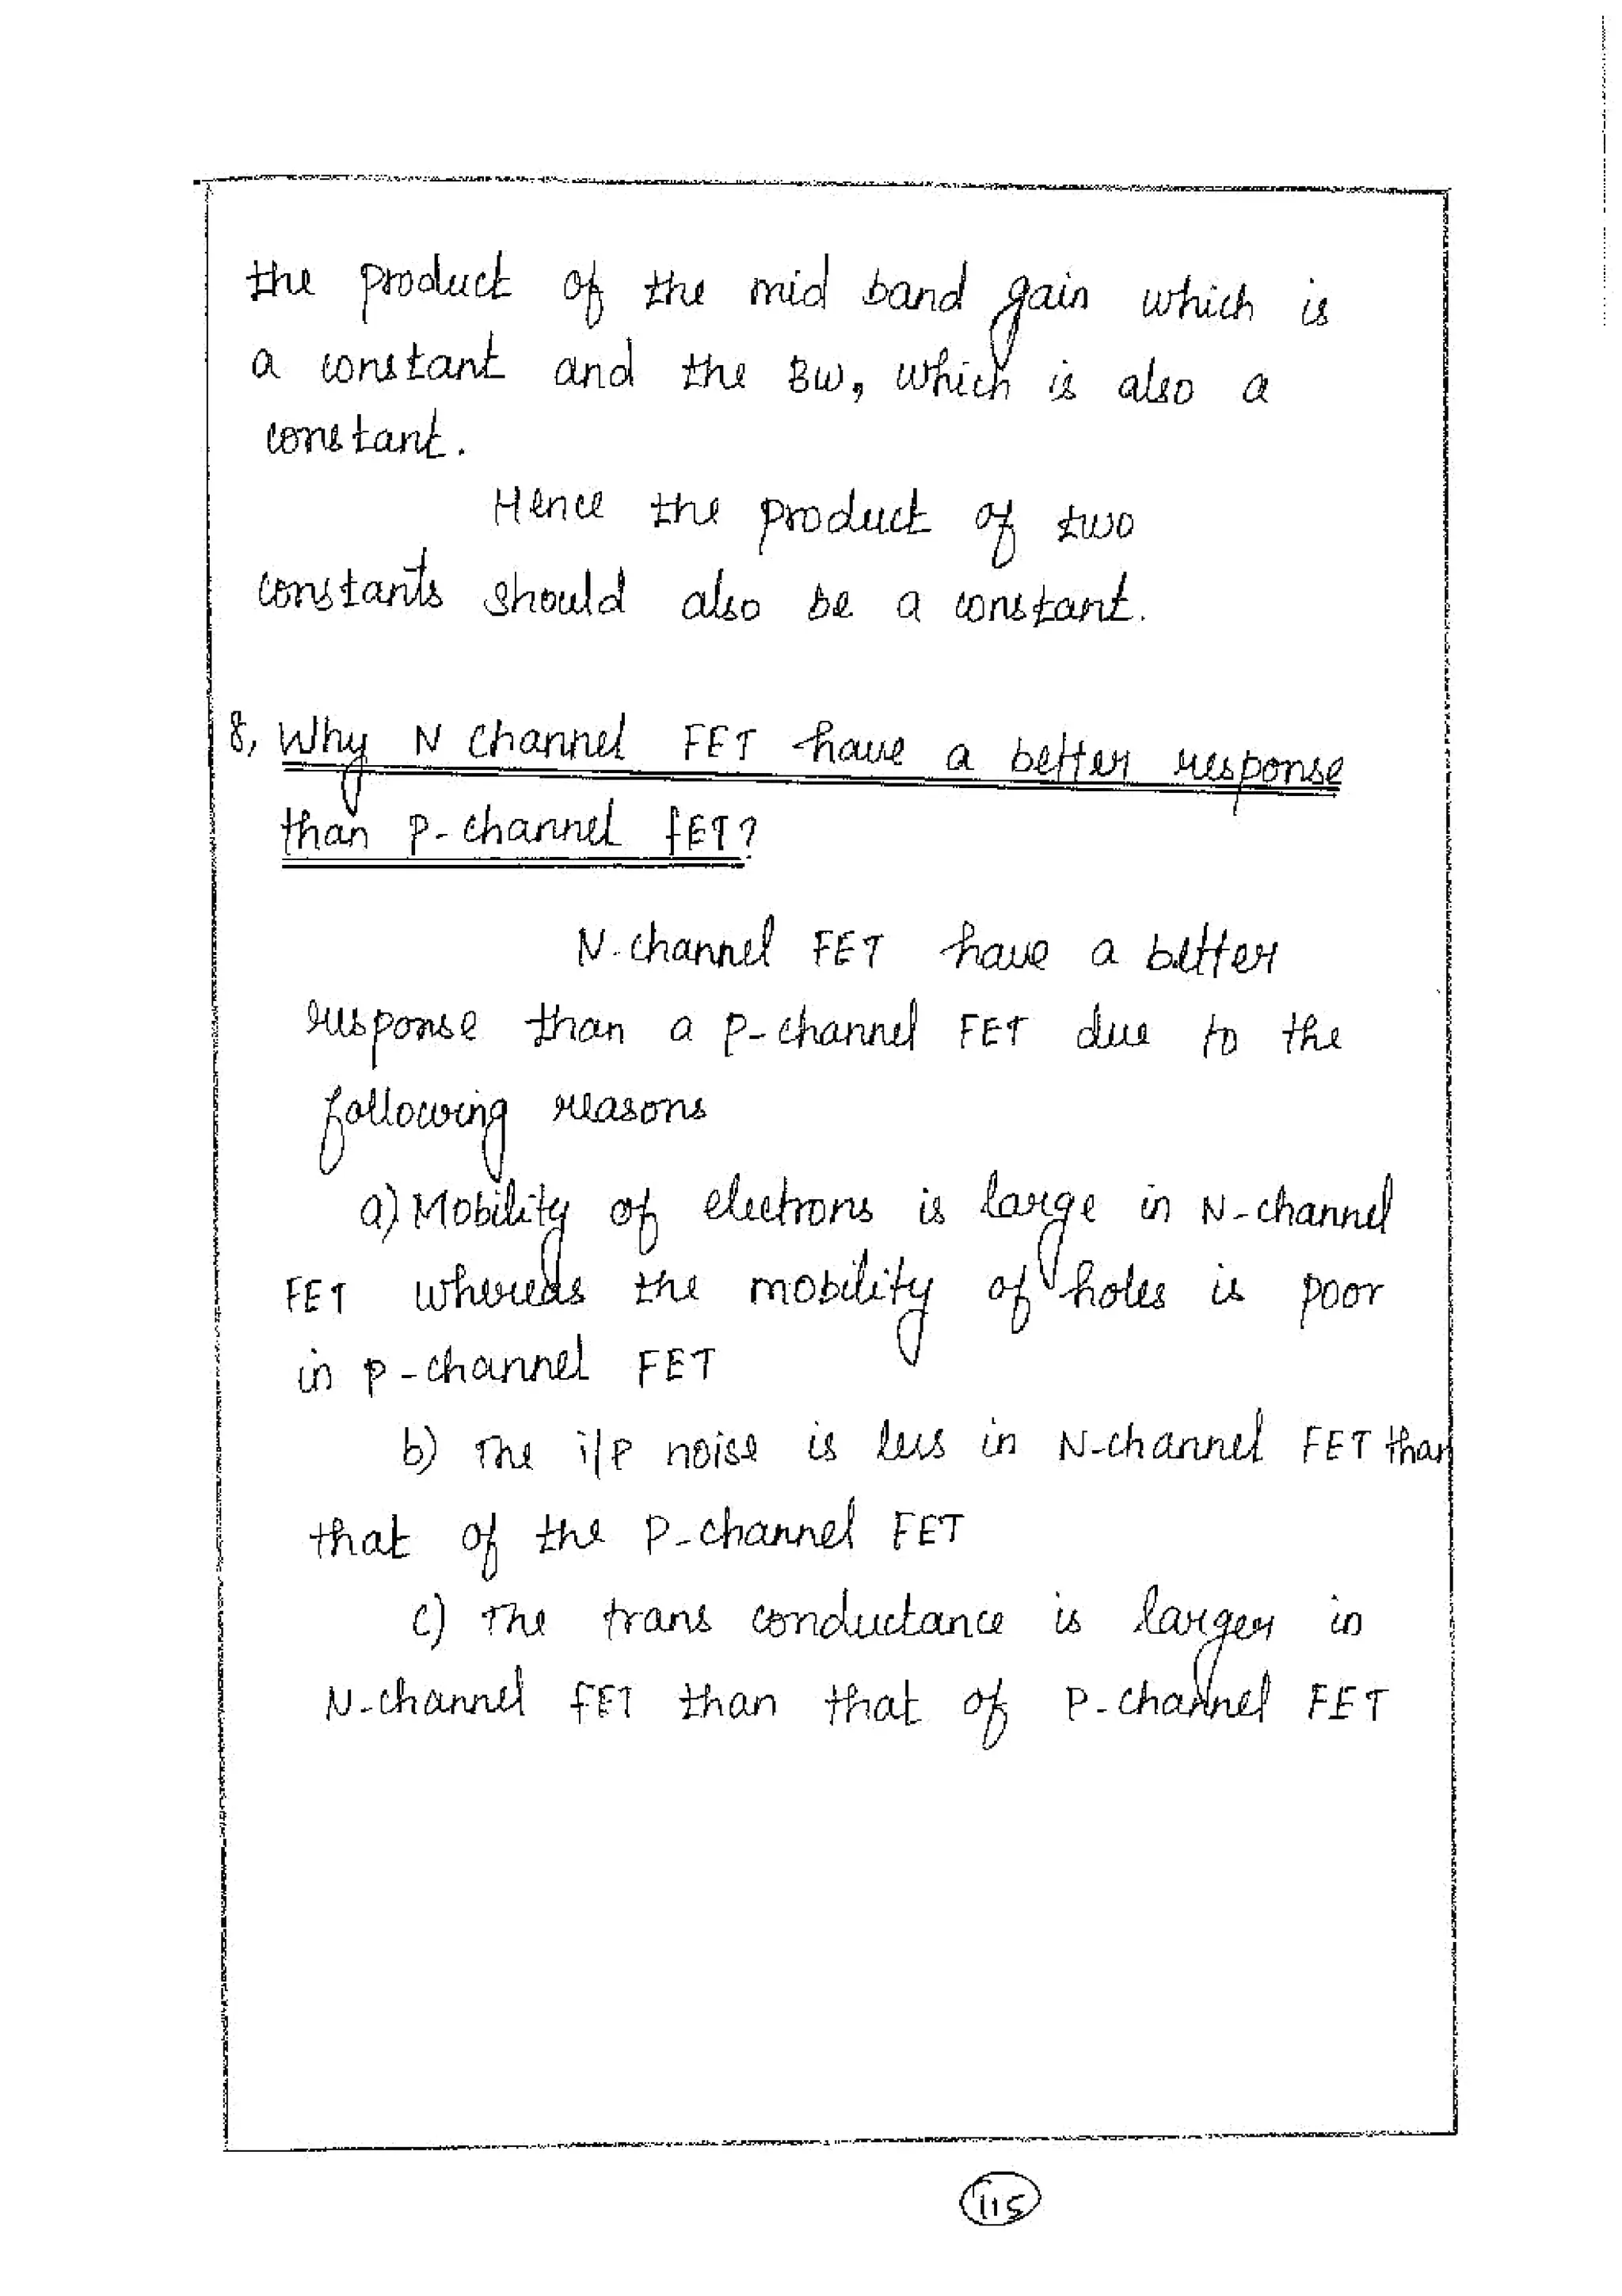 the product of the mid band gain which is
a constant and the BW, which is also a
constant.
Hence the product of two
constants should also be a constant.
8, Why N channel FET have a better response
than P-channel FET?
N-channel FET have a better
response than a P-channel FET due to the
following reasons
a) Mobility of electrons is large in N-channel
FET whereas the mobility of holes is poor
in P-channel FET
b) The i/P noise is less in N-channel FET than
that of the P-channel FET
c) The trans conductance is larger in
N-channel FET than that of P-channel FET
115